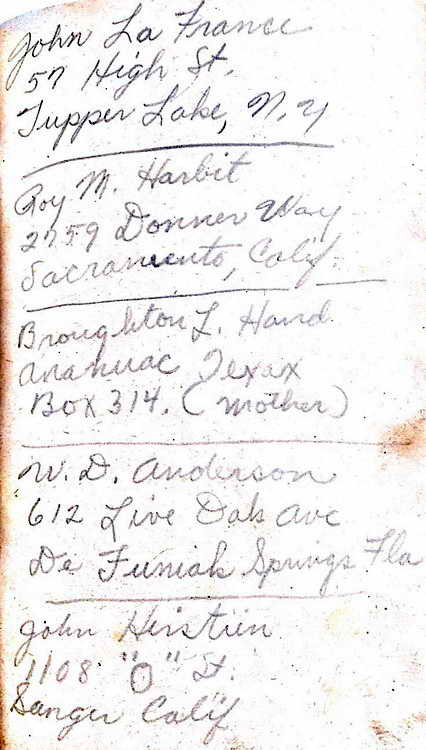 John La France
57 High St.
Tupper Lake, N.Y
Roy M. Harbit
2759 Donner Way
Sacramento, Calif.
Broughton L. Hand
Anahuac Texax
Box 314. (Mother)
W. D. Anderson
612 Live Oak Ave
De Funiak Springs Fla
John Heistien
1108 "O" St.
Sanger Calif